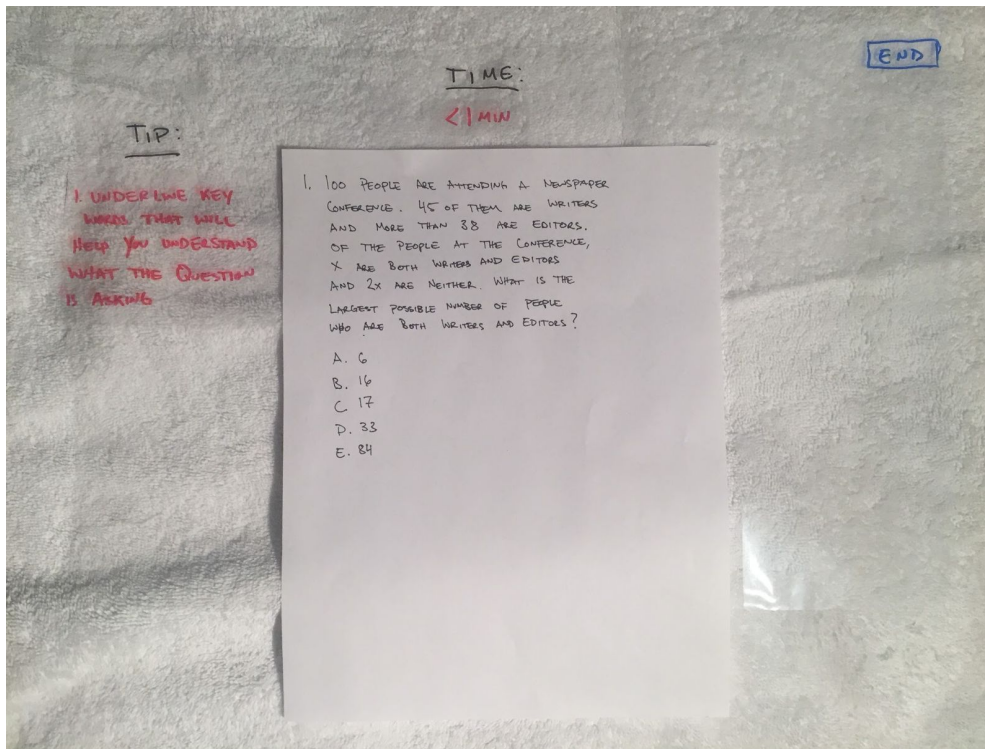 END
TIME:
<1 MIN
TIP:
1. UNDERLINE KEY
WORDS THAT WILL
HELP YOU UNDERSTAND
WHAT THE QUESTION
IS ASKING
1. 100 PEOPLE ARE ATTENDING A NEWSPAPER
CONFERENCE. 45 OF THEM ARE WRITERS
AND MORE THAN 38 ARE EDITORS.
OF THE PEOPLE AT THE CONFERENCE,
X ARE BOTH WRITERS AND EDITORS
AND 2X ARE NEITHER. WHAT IS THE
LARGEST POSSIBLE NUMBER OF PEOPLE
WHO ARE BOTH WRITERS AND EDITORS?
A. 6
B. 16
C 17
D. 33
E. 84